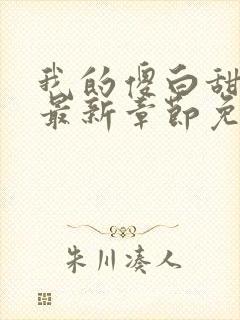 我的傻白甜
最新章节免
朱川凑人